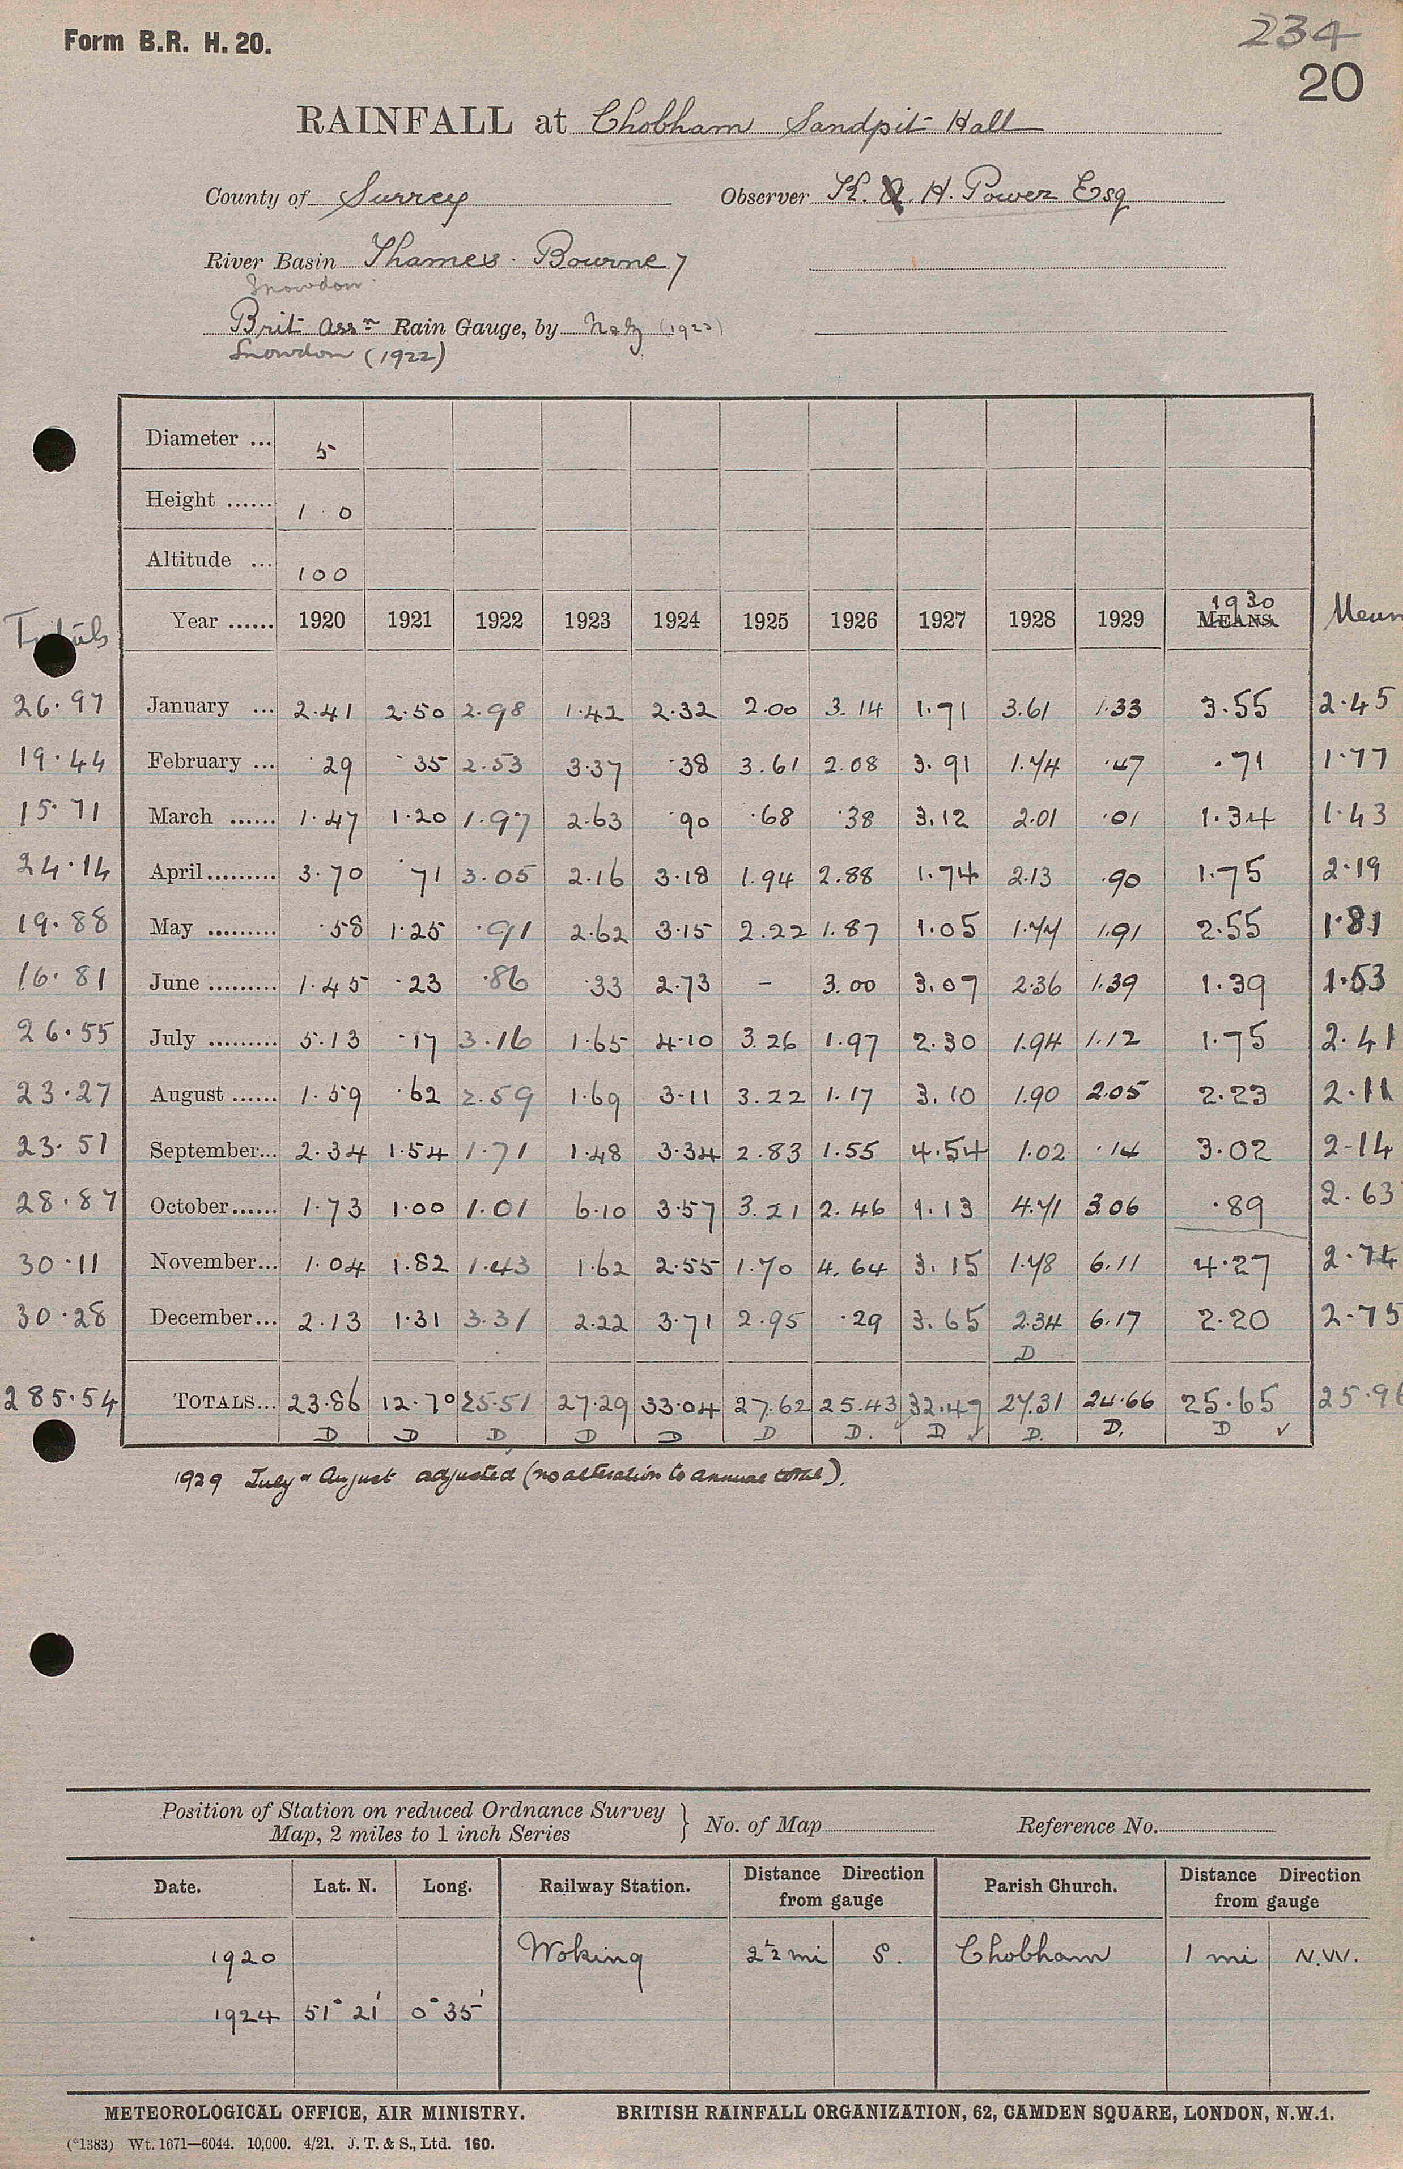 Form B.R. H. 20.
234
20
RAINFALL at Chobham Sandpit Hall
County of Surrey Observer K. H. Power Esq
River Basin Thames. Bourne 7
Snowdon
Brit Assn Rain Gauge, by
Snowdon (1922)
Diameter ... 5
Height ...... 1 . 0
Altitude ... 100
1930
Totals Year ...... 1920 1921 1922 1923 1924 1925 1926 1927 1928 1929 MEANS. Mean
26.97 January ... 2.41 2.50 2.98 1.42 2.32 2.00 3.14 1.71 3.61 1.33 3.55 2.45
19.44 February ... .29 .35 2.53 3.37 .38 3.61 2.08 3.91 1.74 .47 .71 1.77
15.71 March ...... 1.47 1.20 1.97 2.63 .90 .68 .38 3.12 2.01 .01 1.34 1.43
24.14 April......... 3.70 .71 3.05 2.16 3.18 1.94 2.88 1.74 2.13 .90 1.75 2.19
19.88 May ......... .58 1.25 .91 2.62 3.15 2.22 1.87 1.05 1.77 1.91 2.55 1.81
16.81 June ......... 1.45 .23 .86 .33 2.73 - 3.00 3.07 2.36 1.39 1.39 1.53
26.55 July ......... 5.13 .17 3.16 1.65 4.10 3.26 1.97 2.30 1.94 1.12 1.75 2.41
23.27 August ...... 1.59 .62 2.59 1.69 3.11 3.22 1.17 3.10 1.90 2.05 2.23 2.11
23.51 September... 2.34 1.54 1.71 1.48 3.34 2.83 1.55 4.54 1.02 .14 3.02 2.14
28.87 October...... 1.73 1.00 1.01 6.10 3.57 3.21 2.46 1.13 4.71 3.06 .89 2.63
30.11 November... 1.04 1.82 1.43 1.62 2.55 1.70 4.64 3.15 1.78 6.11 4.27 2.74
30.28 December... 2.13 1.31 3.31 2.22 3.71 2.95 .29 3.65 2.34 6.17 2.20 2.75
D
285.54 TOTALS... 23.86 12.70 25.51 27.29 33.04 27.62 25.43 32.47 27.31 24.66 25.65 25.96
D D D D D D D. D D. D. D ✓
1929 July & August adjusted (no alteration to annual total).
Position of Station on reduced Ordnance Survey Map, 2 miles to 1 inch Series } No. of Map Reference No.
Date. Lat. N. Long. Railway Station. Distance Direction from gauge Parish Church. Distance Direction from gauge
1920 Woking 2½ mi S. Chobham 1 mi N.W.
1924 51° 21' 0° 35'
METEOROLOGICAL OFFICE, AIR MINISTRY. BRITISH RAINFALL ORGANIZATION, 62, CAMDEN SQUARE, LONDON, N.W.1.
(*1383) Wt. 1671—6044. 10,000. 4/21. J. T. & S., Ltd. 160.